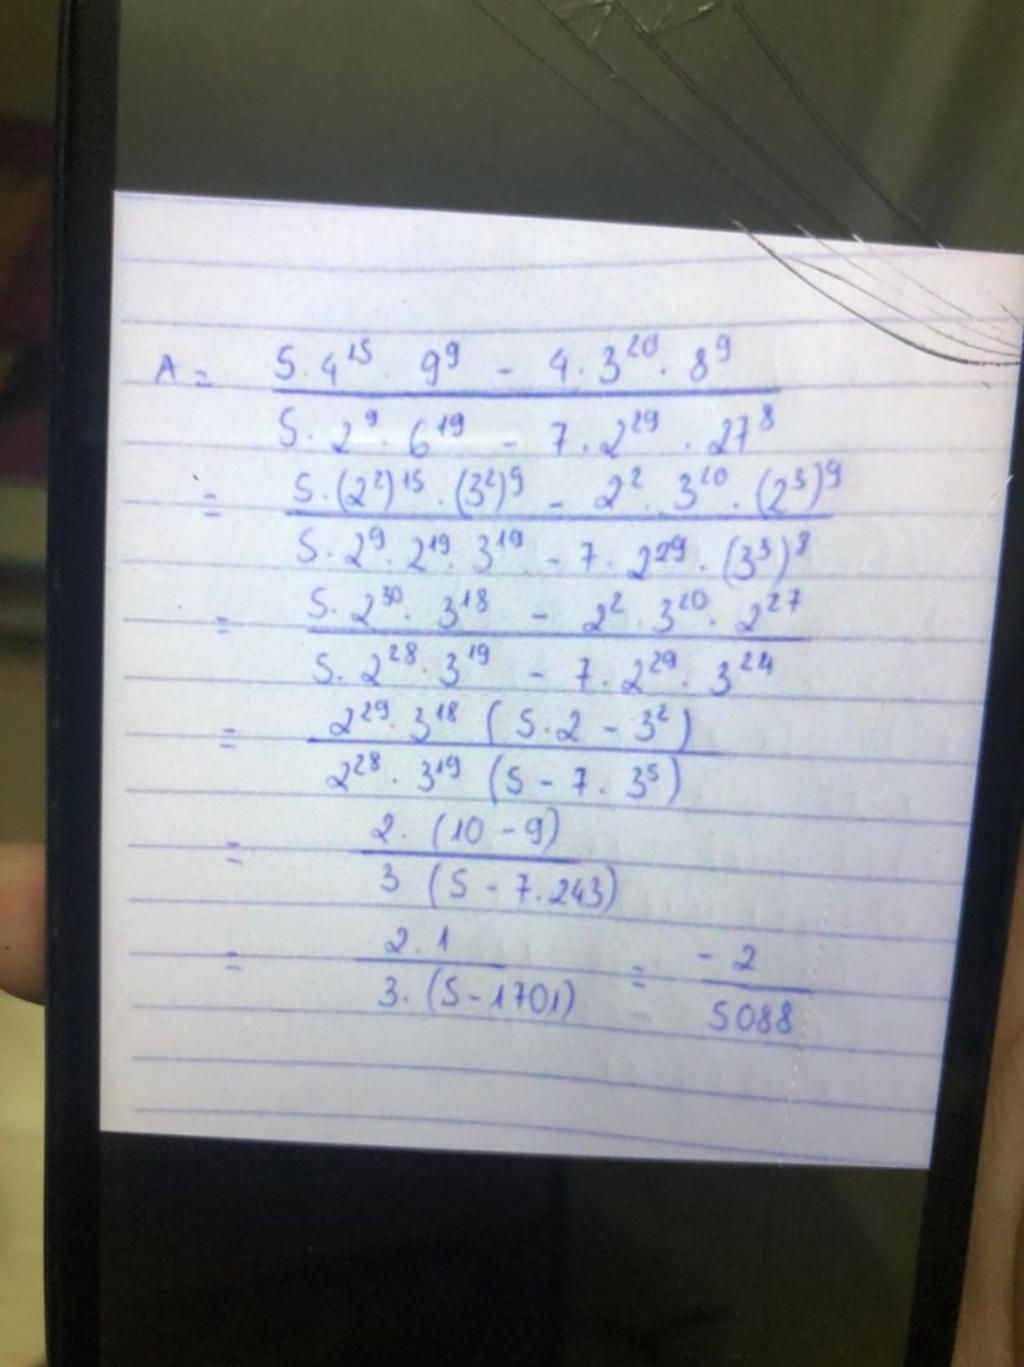 A = 5.4¹⁵ . 9⁹ - 4.3²⁰ . 8⁹
5. 2⁹ . 6¹⁹ - 7.2²⁹ . 27⁸
= 5.(2²)¹⁵ . (3²)⁹ - 2² . 3²⁰ . (2³)⁹
5. 2⁹ . 2¹⁹ . 3¹⁹ - 7. 2²⁹ . (3³)⁸
= 5. 2³⁰ . 3¹⁸ - 2² . 3²⁰ . 2²⁷
5. 2²⁸ . 3¹⁹ - 7. 2²⁹ . 3²⁴
= 2²⁹ . 3¹⁸ ( 5.2 - 3² )
2²⁸ . 3¹⁹ (5 - 7 . 3⁵)
= 2. (10 - 9)
3 (5 - 7.243)
= 2. 1 = - 2
3. (5 - 1701) 5088